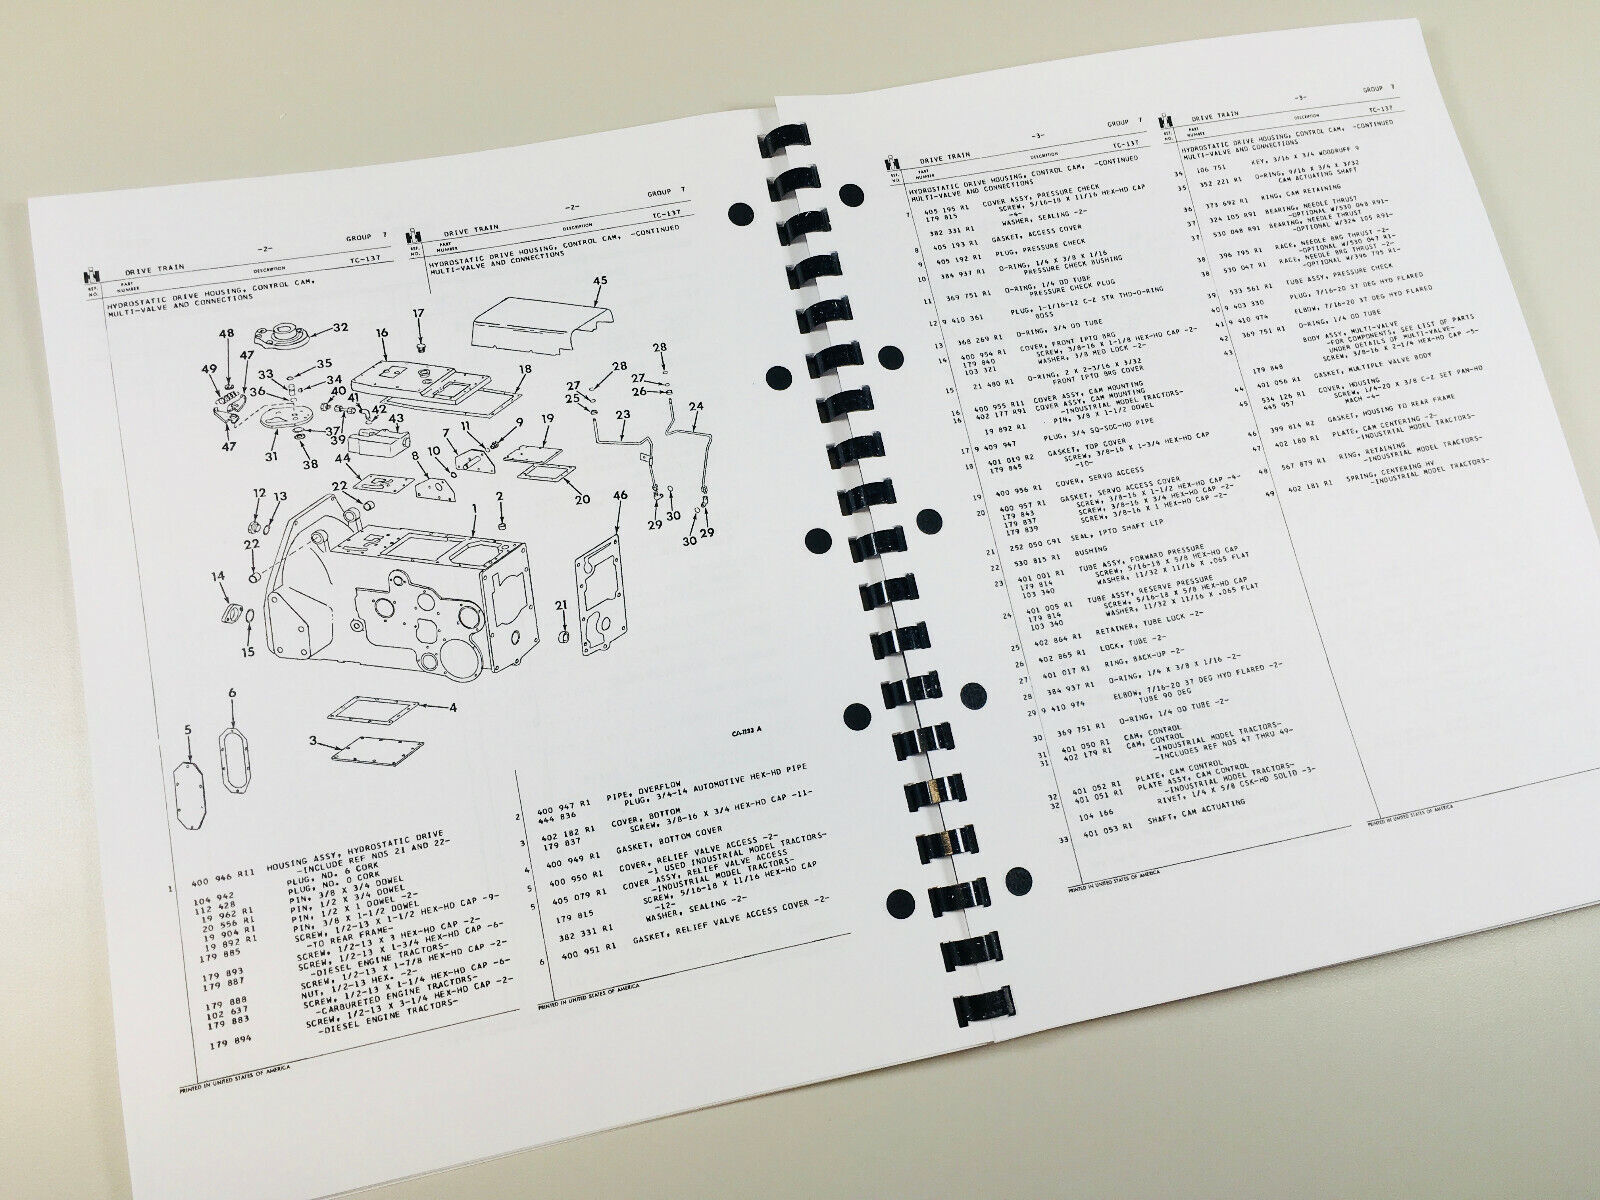 DRIVE TRAIN
-2-
GROUP 7
REF. NO.
DESCRIPTION
TC-137
HYDROSTATIC DRIVE HOUSING, CONTROL CAM,
MULTI-VALVE AND CONNECTIONS
DRIVE TRAIN
-2-
GROUP 7
REF. NO.
PART NUMBER
DESCRIPTION
TC-137
HYDROSTATIC DRIVE HOUSING, CONTROL CAM, -CONTINUED
MULTI-VALVE AND CONNECTIONS
45
17
32
48
16
47
35
49
33
34
36
40
18
28
28
27
27
25
26
41
42
43
37
39
47
31
38
7
11
9
19
23
24
8
10
44
20
22
12
13
2
46
1
29
30
30
29
22
14
21
15
6
4
5
3
CA-1133 A
1 400 946 R11 HOUSING ASSY, HYDROSTATIC DRIVE
-INCLUDE REF NOS 21 AND 22-
104 942 PLUG, NO. 6 CORK
112 428 PLUG, NO. 0 CORK
19 962 R1 PIN, 3/8 X 3/4 DOWEL
20 556 R1 PIN, 1/2 X 3/4 DOWEL
19 904 R1 PIN, 1/2 X 1 DOWEL -2-
19 892 R1 PIN, 3/8 X 1-1/2 DOWEL
179 885 SCREW, 1/2-13 X 1-1/2 HEX-HD CAP -9-
-TO REAR FRAME-
179 893 SCREW, 1/2-13 X 3 HEX-HD CAP -2-
179 887 SCREW, 1/2-13 X 1-3/4 HEX-HD CAP -6-
-DIESEL ENGINE TRACTORS-
179 888 SCREW, 1/2-13 X 1-7/8 HEX-HD CAP -2-
102 637 NUT, 1/2-13 HEX. -2-
179 883 SCREW, 1/2-13 X 1-1/4 HEX-HD CAP -6-
-CARBURETED ENGINE TRACTORS-
179 894 SCREW, 1/2-13 X 3-1/4 HEX-HD CAP -2-
-DIESEL ENGINE TRACTORS-
PRINTED IN UNITED STATES OF AMERICA
2 400 947 R1 PIPE, OVERFLOW
444 836 PLUG, 3/4-14 AUTOMOTIVE HEX-HD PIPE
3 402 182 R1 COVER, BOTTOM
179 837 SCREW, 3/8-16 X 3/4 HEX-HD CAP -11-
4 400 949 R1 GASKET, BOTTOM COVER
5 400 950 R1 COVER, RELIEF VALVE ACCESS -2-
-1 USED INDUSTRIAL MODEL TRACTORS-
5 405 079 R1 COVER ASSY, RELIEF VALVE ACCESS
-INDUSTRIAL MODEL TRACTORS-
179 815 SCREW, 5/16-18 X 11/16 HEX-HD CAP
-12-
382 331 R1 WASHER, SEALING -2-
6 400 951 R1 GASKET, RELIEF VALVE ACCESS COVER -2-
PRINTED IN UNITED STATES OF AMERICA
DRIVE TRAIN
-3-
GROUP 7
REF. NO.
PART NUMBER
DESCRIPTION
TC-137
HYDROSTATIC DRIVE HOUSING, CONTROL CAM, -CONTINUED
MULTI-VALVE AND CONNECTIONS
7 405 195 R1 COVER ASSY, PRESSURE CHECK
179 815 SCREW, 5/16-18 X 11/16 HEX-HD CAP
-4-
382 331 R1 WASHER, SEALING -2-
8 405 193 R1 GASKET, ACCESS COVER
9 405 192 R1 PLUG, PRESSURE CHECK
10 384 937 R1 O-RING, 1/4 X 3/8 X 1/16
PRESSURE CHECK BUSHING
11 369 751 R1 O-RING, 1/4 OD TUBE
PRESSURE CHECK PLUG
12 9 410 361 PLUG, 1-1/16-12 C-Z STR THD-O-RING
BOSS
13 368 269 R1 O-RING, 3/4 OD TUBE
14 400 954 R1 COVER, FRONT IPTO BRG
179 840 SCREW, 3/8-16 X 1-1/8 HEX-HD CAP -2-
103 321 WASHER, 3/8 MED LOCK -2-
15 21 480 R1 O-RING, 2 X 2-3/16 X 3/32
FRONT IPTO BRG COVER
16 400 955 R11 COVER ASSY, CAM MOUNTING
16 402 177 R91 COVER ASSY, CAM MOUNTING
-INDUSTRIAL MODEL TRACTORS-
19 892 R1 PIN, 3/8 X 1-1/2 DOWEL
17 9 409 947 PLUG, 3/4 SQ-SOC-HD PIPE
18 401 019 R2 GASKET, TOP COVER
179 845 SCREW, 3/8-16 X 1-3/4 HEX-HD CAP
-10-
19 400 956 R1 COVER, SERVO ACCESS
20 400 957 R1 GASKET, SERVO ACCESS COVER
179 843 SCREW, 3/8-16 X 1-1/2 HEX-HD CAP -4-
179 837 SCREW, 3/8-16 X 3/4 HEX-HD CAP -2-
179 839 SCREW, 3/8-16 X 1 HEX-HD CAP -2-
21 252 050 C91 SEAL, IPTO SHAFT LIP
22 530 815 R1 BUSHING
23 401 001 R1 TUBE ASSY, FORWARD PRESSURE
179 814 SCREW, 5/16-18 X 5/8 HEX-HD CAP
103 340 WASHER, 11/32 X 11/16 X .065 FLAT
24 401 005 R1 TUBE ASSY, RESERVE PRESSURE
179 814 SCREW, 5/16-18 X 5/8 HEX-HD CAP
103 340 WASHER, 11/32 X 11/16 X .065 FLAT
25 402 864 R1 RETAINER, TUBE LOCK -2-
26 402 865 R1 LOCK, TUBE -2-
27 401 017 R1 RING, BACK-UP -2-
28 384 937 R1 O-RING, 1/4 X 3/8 X 1/16 -2-
29 9 410 974 ELBOW, 7/16-20 37 DEG HYD FLARED -2-
TUBE 90 DEG
30 369 751 R1 O-RING, 1/4 OD TUBE -2-
31 401 050 R1 CAM, CONTROL
31 402 179 R1 CAM, CONTROL
-INDUSTRIAL MODEL TRACTORS-
-INCLUDES REF NOS 47 THRU 49-
32 401 052 R1 PLATE, CAM CONTROL
32 401 051 R1 PLATE ASSY, CAM CONTROL
-INDUSTRIAL MODEL TRACTORS-
104 166 RIVET, 1/4 X 5/8 CSK-HD SOLID -3-
33 401 053 R1 SHAFT, CAM ACTUATING
PRINTED IN UNITED STATES OF AMERICA
DRIVE TRAIN
-3-
GROUP 7
REF. NO.
PART NUMBER
DESCRIPTION
TC-137
HYDROSTATIC DRIVE HOUSING, CONTROL CAM, -CONTINUED
MULTI-VALVE AND CONNECTIONS
34 106 751 KEY, 3/16 X 3/4 WOODRUFF 9
35 352 221 R1 O-RING, 9/16 X 3/4 X 3/32
CAM ACTUATING SHAFT
36 373 692 R1 RING, CAM RETAINING
37 324 105 R91 BEARING, NEEDLE THRUST
-OPTIONAL W/530 048 R91-
37 530 048 R91 BEARING, NEEDLE THRUST
-OPTIONAL W/324 105 R91-
38 396 795 R1 RACE, NEEDLE BRG THRUST -2-
-OPTIONAL W/530 047 R1-
38 530 047 R1 RACE, NEEDLE BRG THRUST -2-
-OPTIONAL W/396 795 R1-
39 533 561 R1 TUBE ASSY, PRESSURE CHECK
40 9 403 330 PLUG, 7/16-20 37 DEG HYD FLARED
41 9 410 974 ELBOW, 7/16-20 37 DEG HYD FLARED
42 369 751 R1 O-RING, 1/4 OD TUBE
43 BODY ASSY, MULTI-VALVE
-FOR COMPONENTS, SEE LIST OF PARTS
UNDER DETAILS OF MULTI-VALVE-
179 848 SCREW, 3/8-16 X 2-1/4 HEX-HD CAP -5-
44 401 056 R1 GASKET, MULTIPLE VALVE BODY
45 534 126 R1 COVER, HOUSING
445 957 SCREW, 1/4-20 X 3/8 C-Z SET PAN-HD
MACH -4-
46 399 814 R2 GASKET, HOUSING TO REAR FRAME
47 402 180 R1 PLATE, CAM CENTERING -2-
-INDUSTRIAL MODEL TRACTORS-
48 567 879 R1 RING, RETAINING
-INDUSTRIAL MODEL TRACTORS-
49 402 181 R1 SPRING, CENTERING HV
-INDUSTRIAL MODEL TRACTORS-
PRINTED IN UNITED STATES OF AMERICA